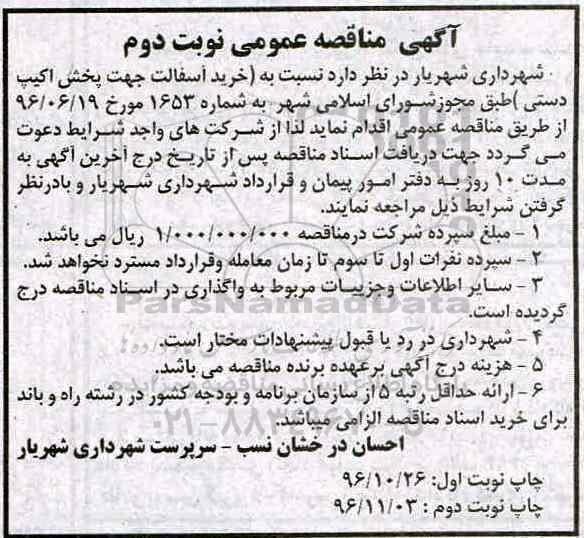 آگهی مناقصه عمومی نوبت دوم
شهرداری شهریار در نظر دارد نسبت به (خرید آسفالت جهت پخش اکیپ
دستی )طبق مجوزشورای اسلامی شهر به شماره ۱۶۵۳ مورخ ۹۶/۰۶/۱۹
از طریق مناقصه عمومی اقدام نماید لذا از شرکت های واجد شرایط دعوت
می گردد جهت دریافت اسناد مناقصه پس از تاریخ درج آخرین آگهی به
مدت ۱۰ روز به دفتر امور پیمان و قرارداد شهرداری شهریار و بادرنظر
گرفتن شرایط ذیل مراجعه نمایند.
۱ - مبلغ سپرده شرکت درمناقصه ۱/۰۰۰/۰۰۰/۰۰۰ ریال می باشد.
۲ - سپرده نفرات اول تا سوم تا زمان معامله وقرارداد مسترد نخواهد شد.
۳ - سایر اطلاعات وجزییات مربوط به واگذاری در اسناد مناقصه درج
گردیده است.
ParsNamadData
۴ - شهرداری در رد یا قبول پیشنهادات مختار است.
۵ - هزینه درج آگهی برعهده برنده مناقصه می باشد.
۶ - ارائه حداقل رتبه ۵ از سازمان برنامه و بودجه کشور در رشته راه و باند
برای خرید اسناد مناقصه الزامی میباشد.
احسان در خشان نسب - سرپرست شهرداری شهریار
چاپ نوبت اول: ۹۶/۱۰/۲۶
چاپ نوبت دوم : ۹۶/۱۱/۰۳